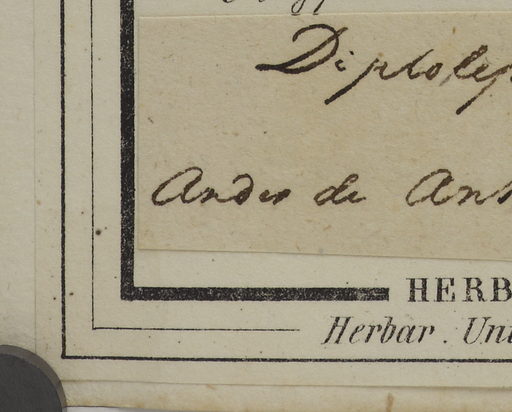 Diplolep
Andes de Ant
HERB
Herbar. Uni